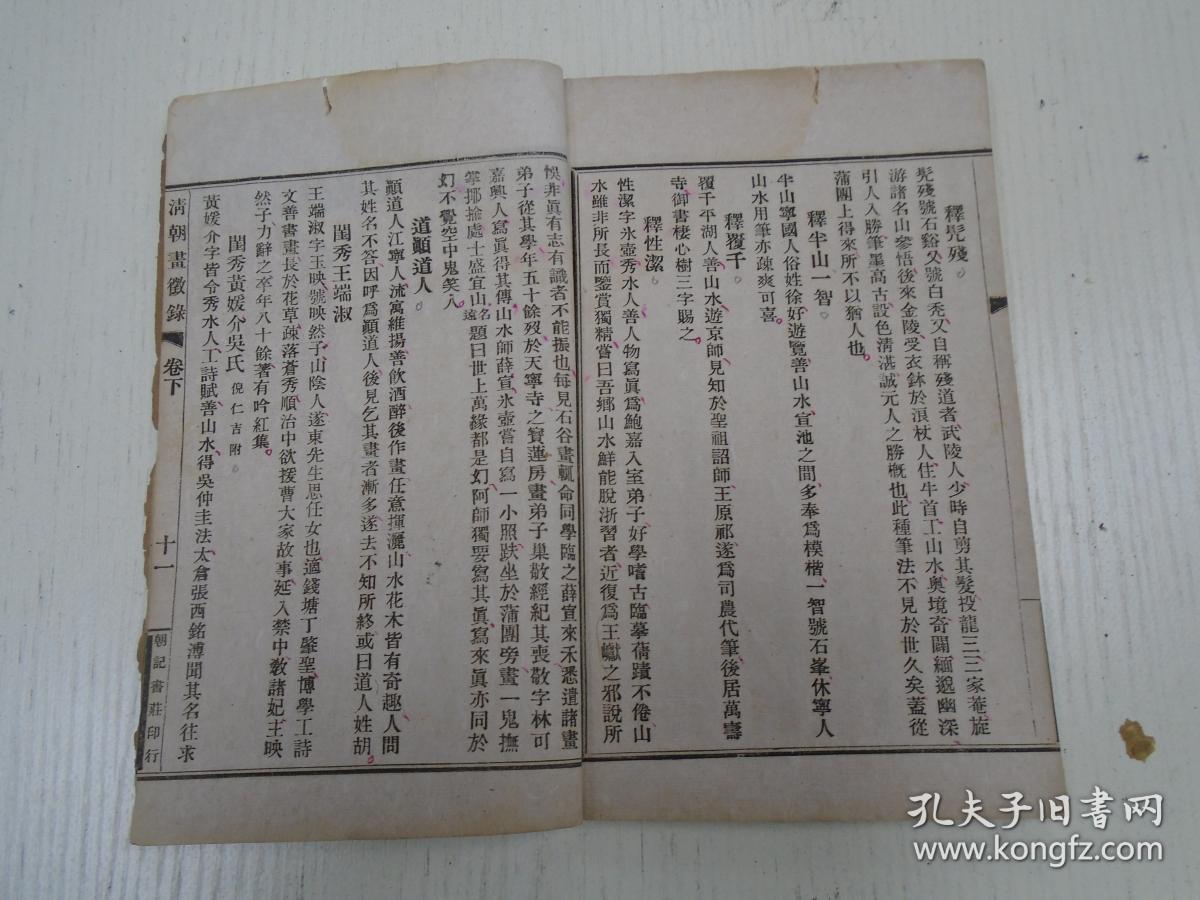 釋髠殘
髠殘號石谿又號白禿又自稱殘道者武陵人少時自剪其髮投龍三三家菴旋
游諸名山參悟後來金陵受衣鉢於浪杖人住牛首工山水奧境奇闢緬邈幽深
引人入勝筆墨高古設色清湛誠元人之勝概也此種筆法不見於世久矣蓋從
蒲團上得來所不以猶人也
釋半山一智
半山寧國人俗姓徐好遊覽善山水宣池之間多奉爲模楷一智號石峯休寧人
山水用筆亦疎爽可喜
釋覆千
覆千平湖人善山水遊京師見知於聖祖詔師王原祁遂爲司農代筆後居萬壽
寺御書棲心樹三字賜之
釋性潔
性潔字氷壺秀水人善人物寫眞爲鮑嘉入室弟子好學嗜古臨摹蒨蹟不倦山
水雖非所長而鑒賞獨精嘗曰吾鄉山水鮮能脫浙習者近復爲王巘之邪說所
悞非眞有志有識者不能振也每見石谷畫輒命同學臨之薛宣來禾悉遣諸畫
弟子從其學年五十餘歿於天寧寺之寳蓮房畫弟子巢敬經紀其喪敬字林可
嘉興人寫眞得其傳山水師薛宣氷壺嘗自寫一小照趺坐於蒲團旁畫一鬼撫
掌揶揄處士盛宜山名遠題曰世上萬緣都是幻阿師獨要寫其眞寫來眞亦同於
幻不覺空中鬼笑人
道顚道人
顚道人江寧人流寓維揚善飲酒醉後作畫任意揮灑山水花木皆有奇趣人問
其姓名不答因呼爲顚道人後見乞其畫者漸多遂去不知所終或曰道人姓胡
閨秀王端淑
王端淑字玉映號映然子山陰人遂東先生思任女也適錢塘丁肇聖博學工詩
文善書畫長於花草疎落蒼秀順治中欲援曹大家故事延入禁中敎諸妃主映
然子力辭之卒年八十餘著有吟紅集
閨秀黃媛介吳氏 倪仁吉附
黃媛介字皆令秀水人工詩賦善山水得吳仲圭法太倉張西銘溥聞其名往求
清朝畫徵錄 卷下 十一 朝記書莊印行
孔夫子旧書网
www.kongfz.com